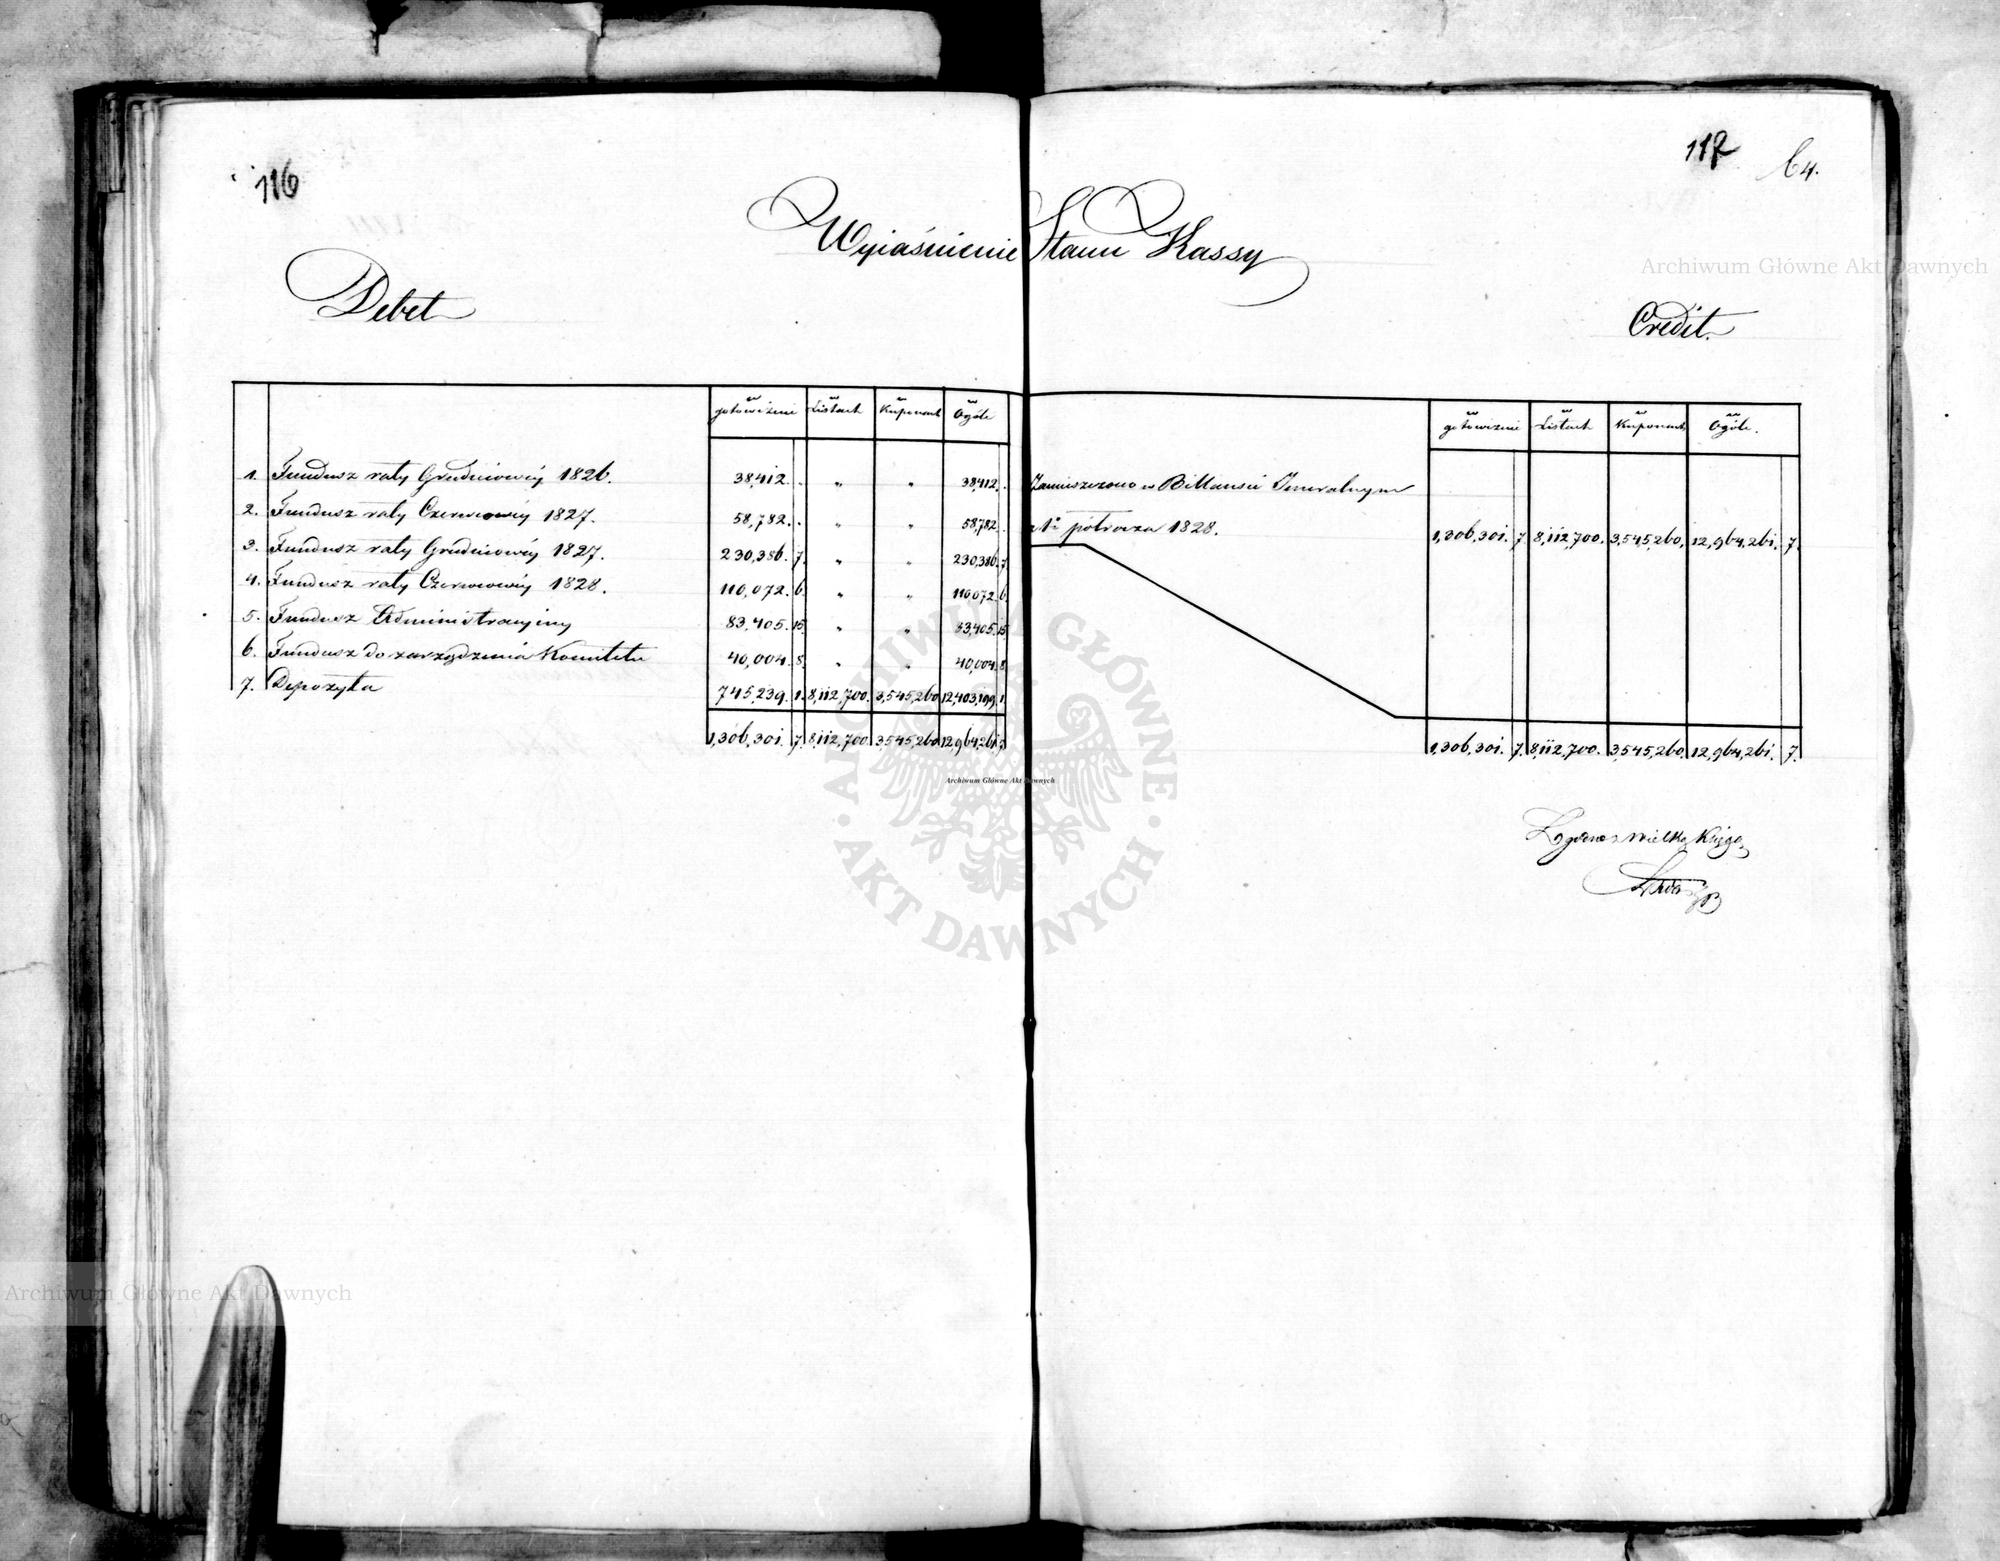 116
117 64.
Wyiaśnienie Stanu Kassy
Debet
Credit.
w gotowiźnie w Listach w Kuponach w Ogóle
1. Fundusz raty Grudniowéy 1826. 38,412. . „ „ 38,412. .
2. Fundusz raty Czerwcowéy 1827. 58,782. . „ „ 58,782. .
3. Fundusz raty Grudniowéy 1827. 230,386. 7. „ „ 230,386. 7.
4. Fundusz raty Czerwcowéy 1828. 110,072. 6. „ „ 110,072. 6.
5. Fundusz Administracyiny 83,405. 15. „ „ 83,405. 15.
6. Fundusz do zarządzenia Komitetu 40,004. 8. „ „ 40,004. 8.
7. Depozyta 745,239. 1. 8,112,700. 3,545,260 12,403,199. 1.
1,306,301. 7. 8,112,700. 3,545,260 12,964,261. 7.
w gotowiznie w Listach w Kuponach w Ogóle.
Zamieszczono w Billansie Jeneralnym
z 1o półrocza 1828. 1,306,301. 7. 8,112,700. 3,545,260. 12,964,261. 7.
1,306,301. 7. 8,112,700. 3,545,260. 12,964,261. 7.
Zgodno z Wielką Księgą
Archiwum Główne Akt Dawnych
Archiwum Główne Akt Dawnych
Archiwum Główne Akt Dawnych
ARCHIWUM GŁÓWNE
AKT DAWNYCH